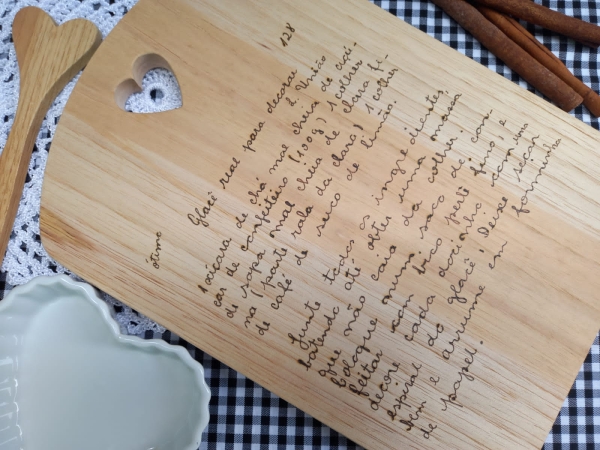 128
Glacê real para decorar
ótimo
2ª Versão
1 xícara de chá mal cheia de açú-
car de confeiteiro (100g) 1 colher
de sopa mal cheia de clara fi-
na (parte rala da clara) 1 colher
de café de suco de limão.
Junte todos os ingredientes
batendo até obter uma massa
que não caia da colher.
Coloque num saco de con-
feitar com bico perlê fino, e
decore cada docinho com uma
espiral do glacê! Deixe secar
bem e arrume em forminha
de papel.